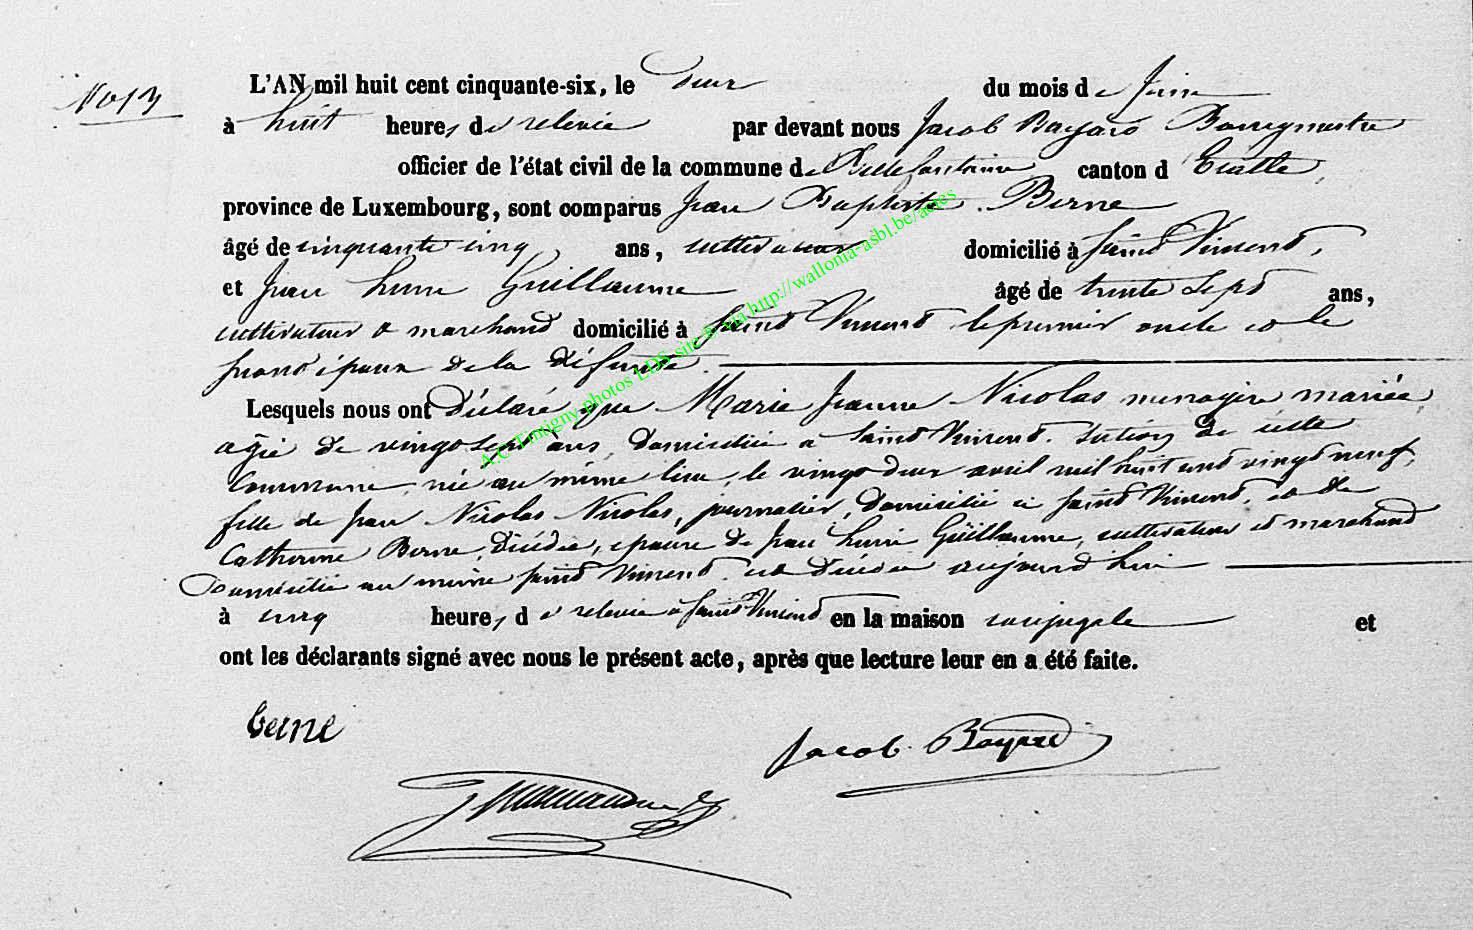 No 13
L'AN mil huit cent cinquante-six, le deux du mois de Juin
à huit heures de relevée par devant nous Jacob Bayard Bourgmestre
officier de l'état civil de la commune de Bellefontaine canton d'Etalle,
province de Luxembourg, sont comparus Jean Baptiste Berne
âgé de cinquante cinq ans, cultivateur domicilié à Saint Vincent,
et Jean Henri Guillaume âgé de trente sept ans,
cultivateur & marchand domicilié à Saint Vincent le premier oncle et le
second époux de la défunte.
Lesquels nous ont Déclaré que Marie Jeanne Nicolas menagère mariée,
agée de vingt sept ans, domiciliée à Saint Vincent, section de cette
Commune, née au même lieu, le vingt deux avril mil huit cent vingt neuf,
fille de Jean Nicolas Nicolas, journalier, domicilié à Saint Vincent, et de
Catherine Berne, Décédée, épouse de Jean Henri Guillaume, cultivateur et marchand
Domicilié au même Saint Vincent, est décédée aujourd'hui
à cinq heures de relevée à Saint Vincent en la maison conjugale et
ont les déclarants signé avec nous le présent acte, après que lecture leur en a été faite.
berne
Jacob Bayard
A.C. Tintigny photos LDS site & via http://wallonia-asbl.be/actes